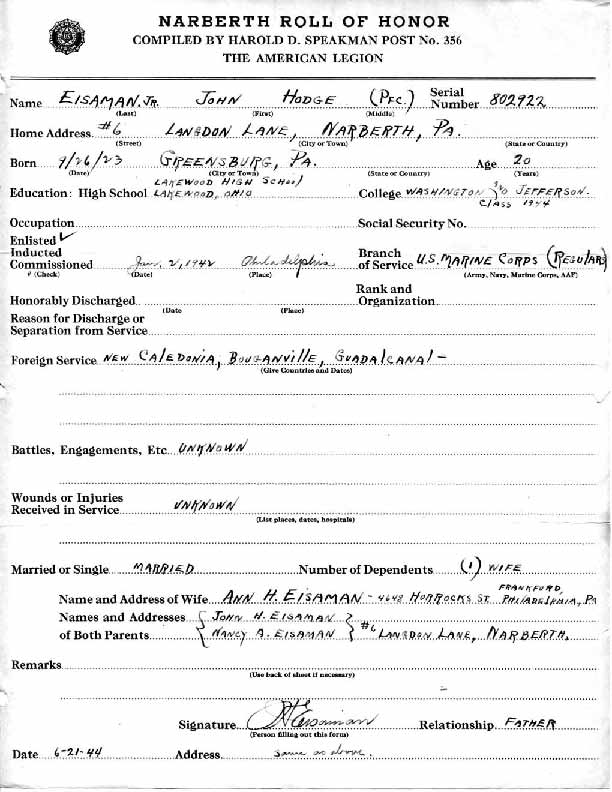 NARBERTH ROLL OF HONOR
COMPILED BY HAROLD D. SPEAKMAN POST No. 356
THE AMERICAN LEGION
Name EISAMAN, JR. JOHN HODGE (PFC.) Serial Number 802922
(Last) (First) (Middle)
Home Address #6 LANGDON LANE, NARBERTH, PA.
(Street) (City or Town) (State or Country)
Born 9/26/23 GREENSBURG, PA. Age 20
(Date) (City or Town) (State or Country) (Years)
LAKEWOOD HIGH SCHOOL
Education: High School LAKEWOOD, OHIO College WASHINGTON & JEFFERSON.
CLASS 1944
Occupation Social Security No.
Enlisted ✓
Inducted Branch
Commissioned Jan. 2, 1942 Philadelphia of Service U.S. MARINE CORPS (REGULAR)
✓ (Check) (Date) (Place) (Army, Navy, Marine Corps, AAF)
Rank and
Honorably Discharged Organization
(Date (Place)
Reason for Discharge or
Separation from Service
Foreign Service NEW CALEDONIA, BOUGANVILLE, GUADALCANAL -
(Give Countries and Dates)
Battles, Engagements, Etc. UNKNOWN
Wounds or Injuries
Received in Service UNKNOWN
(List places, dates, hospitals)
Married or Single MARRIED Number of Dependents (1) WIFE
FRANKFORD,
Name and Address of Wife ANN H. EISAMAN - 4648 HORROCKS ST. PHILADELPHIA, PA
Names and Addresses { JOHN H. EISAMAN }
of Both Parents { NANCY A. EISAMAN } #6 LANGDON LANE, NARBERTH.
Remarks
(Use back of sheet if necessary)
Signature JHEisaman Relationship FATHER
(Person filling out this form)
Date 6-21-44 Address same as above.